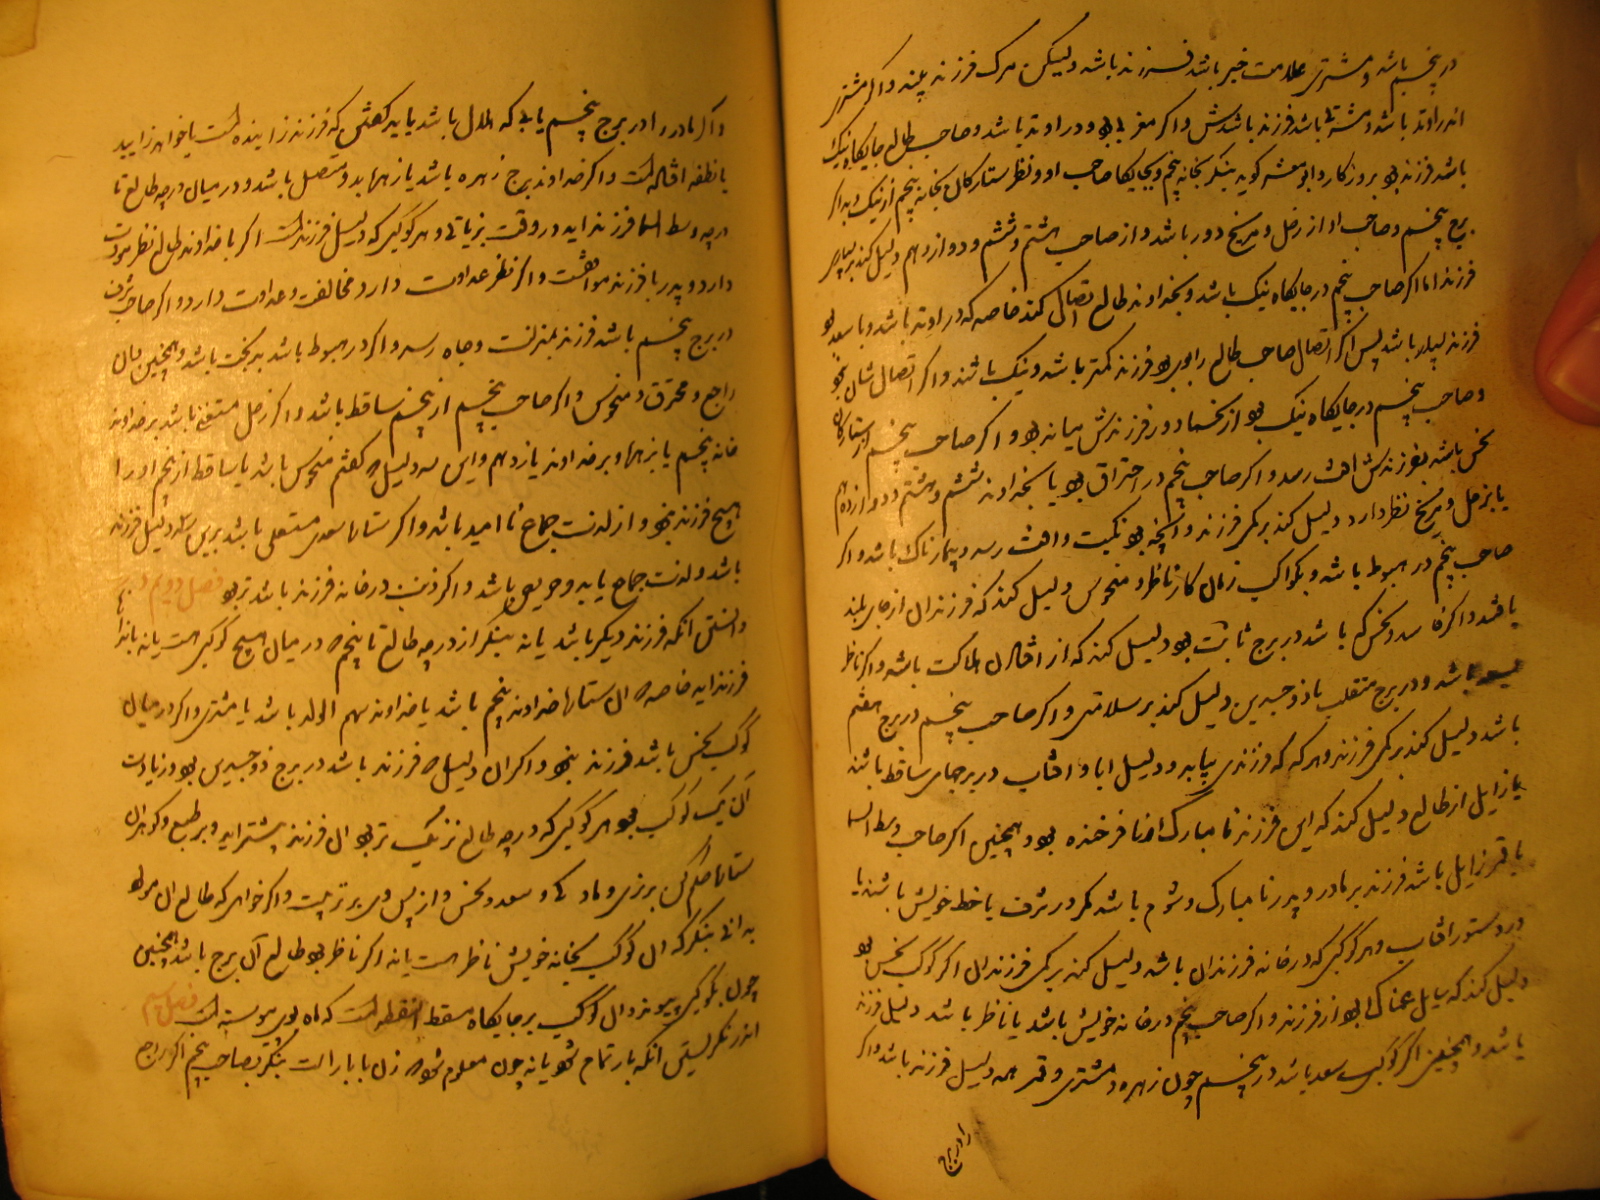 در پنجم باشد و مشتری علامت خیر باشد فرزند باشد ولیکن مرک فرزند بیند و اکر مشتری
اندر اوتد باشد و مشرقی باشد فرزند باشدش و اکر مغربی بود و در اوتد باشد و صاحب طالع جایکاه نیک
باشد فرزند بود بروزکار و ابو معشر کوید بنکر بخانه پنجم و بجایکاه صاحب او و نظر ستارکان بخانه پنجم از نیک و بد اکر
برج پنجم و صاحب او از زحل و مریخ دور باشد و از صاحب هشتم و ششم و دوازدهم دلیل کند بر بسیاری
فرزند اما اکر صاحب پنجم در جایکاه نیک باشد و بخداوند طالع اتصال کند خاصه که در اوتد باشد و با سعد بود
فرزند بسیار باشد پس اکر اتصال صاحب طالع را بود فرزند کمتر باشد و نیک باشند و اکر اتصال شان نبود
و صاحب پنجم در جایکاه نیک بود از نحسها دور فرزندش میانه بود و اکر صاحب پنجم از ستارکان
نحس باشد بفرزندش آفت رسد و اکر صاحب پنجم در احتراق بود یا بخداوند ششم و هشتم و دوازدهم
یا بزحل و مریخ نظر دارد دلیل کند بر کمی فرزند و آنچه بود نکبت و آفت رسد و بیمارناک باشد و اکر
صاحب پنجم در هبوط باشد و بکواکب زیان کار ناظر و منحوس دلیل کند که فرزندان از جای بلند
یافتند و اکر فاسد و نحس کم باشد در برج ثابت بود دلیل کند که از آفات هلاکت باشد و اکر ناظر
بسعد باشد و در برج منقلب یا ذوجسدین دلیل کند بر سلامتی و اکر صاحب پنجم در برج هفتم
باشد دلیل کند بر کمی فرزند و هر که که فرزندی بیابد و دلیل ابا و آفتاب در برجهای ساقط باشند
یا زایل از طالع دلیل کند که این فرزند نا مبارک و نا فرخنده بود و همچنین اکر صاحب وسط السما
یا قمر زایل باشد فرزند بر مادر و پدر نا مبارک و شوم باشد مکر در شرف یا خط خویش باشند یا
در دستور آفتاب و هر کوکبی که در خانه فرزندان باشد دلیل کند بر کمی فرزندان اکر کوکب نحس بود
دلیل کند که سایل غمناک بود از فرزند و اکر صاحب پنجم در خانه خویش باشد یا ناظر باشد دلیل فرزند
باشد و همچنین اکر کوکب سعد باشد در پنجم چون زهره و مشتری و قمر همه دلیل فرزند باشد و اکر
را در برج
و اکر ماه را در برج پنجم یابی که هلال باشد باید کفتن که فرزند زاینده است یا خواهد زایید
یا نطفه افتاده است و اکر خداوند برج زهره باشد یا زهره بدو متصل باشد و در میان درجه طالع تا
درجه وسط السما فرزند آید در وقت بزیاتی و هر کوکبی که دلیل فرزند است اکر با خداوند طالع نظر مودت
دارد و پدر با فرزند موافقست و اکر نظر عداوت دارد مخالفت و عداوت دارد و اکر صاحب شرف
در برج پنجم باشد فرزند بمنزلت و جاه رسد و اکر در هبوط باشد بد بخت باشد و همچنین بدان
راجع و محترق و منحوس و اکر صاحب پنجم از پنجم ساقط باشد و اکر زحل مستولی باشد بر خداوند
خانه پنجم یا بزهره و بر خداوند یازدهم و این سه دلیل که کفتم منحوس باشد یا ساقط از پنجم او را
هیچ فرزند نبود و از لذت جماع نا امید باشد و اکر ستاره سعدی مستعلی باشد برین سه دلیل فرزند
باشد و لذت جماع یابد و حریص باشد و اکر ذنب در خانه فرزند باشد تر بود فصل دویم در
دانستن آنکه فرزند دیکر باشد یا نه بنکر از درجه طالع تا پنجم در میان هیچ کوکبی هست یا نه باندازه
فرزند آید خاصه که آن ستاره خداوند پنجم باشد یا خداوند سهم الولد باشد یا مشتری و اکر در میان
کوکب نحس باشد فرزند نبود و اکر آن دلیل که فرزند باشد در برج ذوجسدین بود و زیادت
آن یک کوکب بود هر کوکبی که درجه طالع نزدیک تر بود آن فرزند پیشتر آید و بر طبع و کوهر آن
ستاره حکم کن بر نری و مادکی و سعد و نحس و از پس وی بر ترتیب و اکر خواهی که طالع آن مولود
بدانی بنکر که آن کوکب بخانه خویش ناظر هست یا نه اکر ناظر بود طالع آن برج باشد و همچنین
چون بکوکبی پیوندد آن کوکب بر جایکاه مسقط النطفه است که ماه بوی پیوسته است فصل سیم
اندر نکرستن آنکه بار تمام شود یا نه چون معلوم شود که زن با بار است بنکر بصاحب پنجم اکر راجع